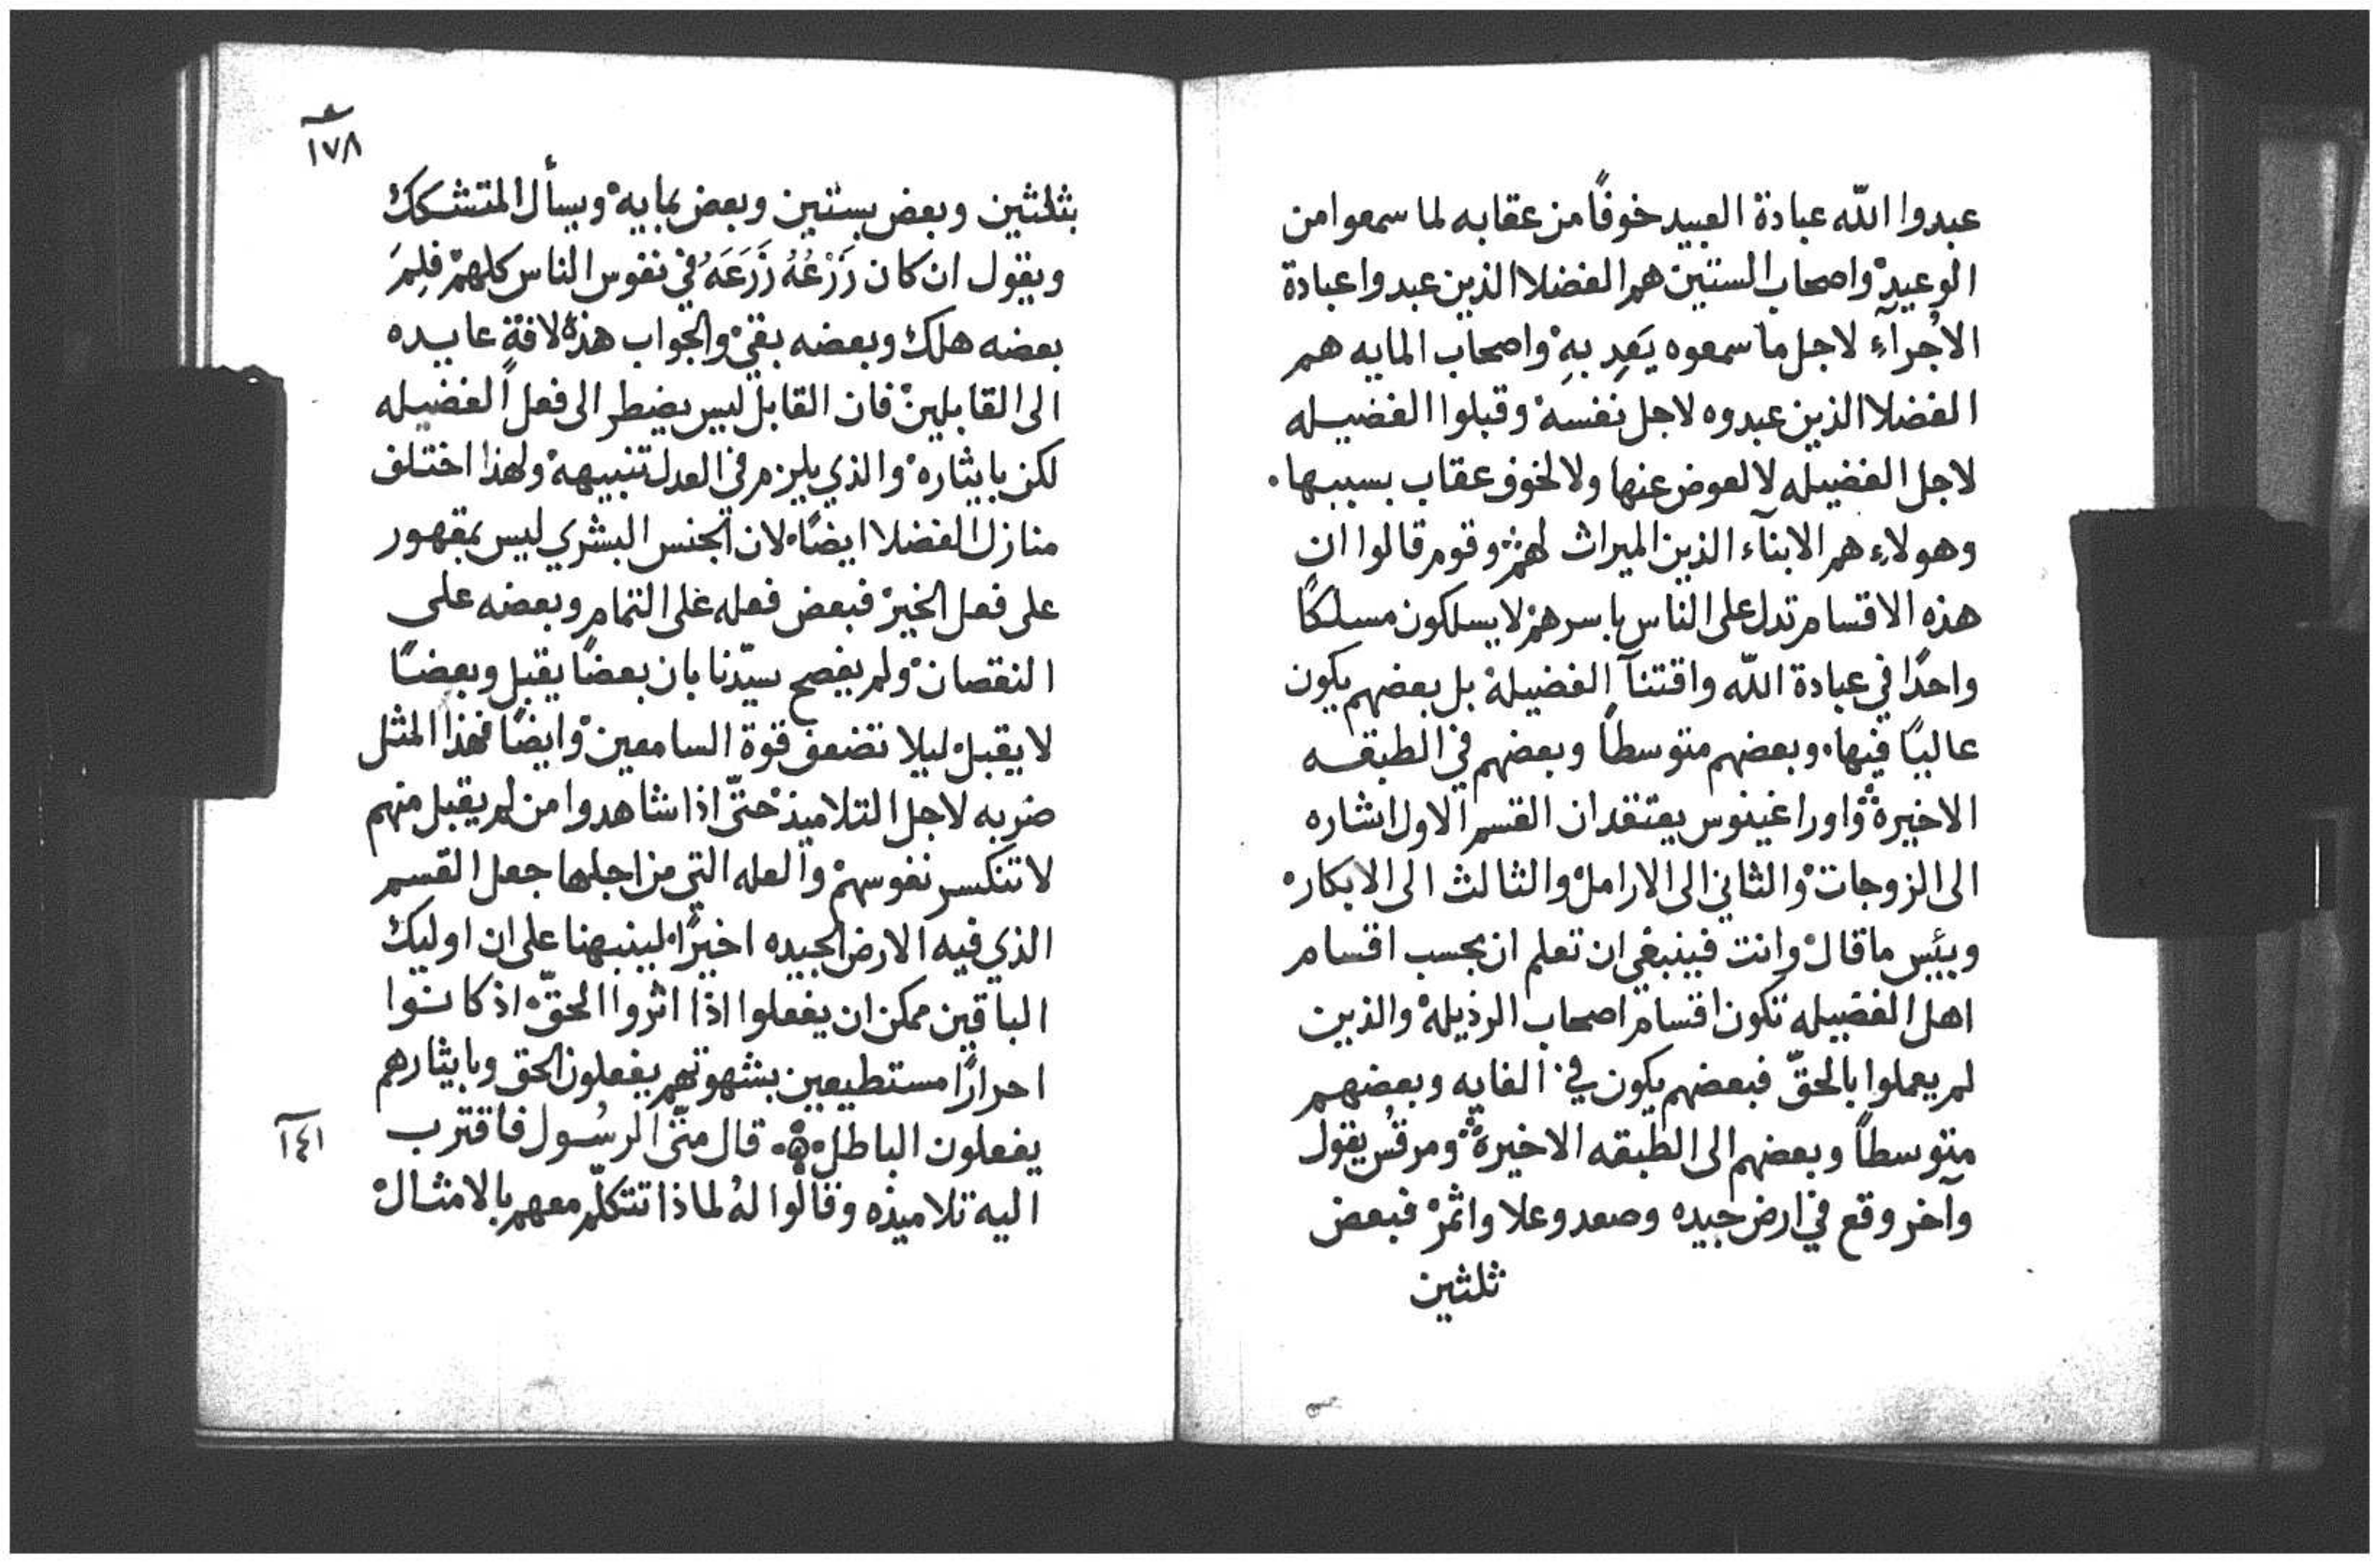 عبدوا اللّه عبادة العبيد خوفًا من عقابه لما سمعوا من
الوعيد واصحاب الستين هم الفضلا الذين عبدوا عبادة
الاُجرآءِ لاجل ما سمعوه يَعِد بهِ واصحاب المايه هم
الفضلا الذين عبدوه لاجل نفسه وقبلوا الفضيله
لاجل الفضيله لا لعوض عنها ولا لخوف عقاب بسببها.
وهولاءِ هم الابنآء الذين الميراث لهم وقوم قالوا ان
هذه الاقسام تدل على الناس باسرهم لا يسلكون مسلكًا
واحدًا في عبادة اللّه واقتنآ الفضيلة بل بعضهم يكون
عاليًا فيها. وبعضهم متوسطًا وبعضهم في الطبقه
الاخيرة واوراغينوس يعتقد ان القسم الاول اشاره
الى الزوجات والثاني الى الارامل والثالث الى الابكار
وبئيس ما قال وانت فينبغي ان تعلم ان بحسب اقسام
اهل الفضيله تكون اقسام اصحاب الرذيلة والذين
لم يعملوا بالحقّ فبعضهم يكون في الغايه وبعضهم
متوسطًا وبعضهم الى الطبقه الاخيرة ومرقس يقول
وآخر وقع في ارض جيده وصعد وعلا واثمر فبعض
ثلثين
١٧٨
بثلثين وبعض بستين وبعض بمايه ويسأل المتشكك
ويقول ان كان زَرْعُهُ زَرَعَهُ في نفوس الناس كلهم فلِمَ
بعضه هلك وبعضه بقي والجواب هذه لافةٍ عايده
الى القابلين فان القابل ليس يضطر الى فعل الفضيله
لكن بايثاره والذي يلزم في العدل تنبيهه ولهذا اختلف
منازل الفضلا ايضًا لان الجنس البشري ليس بمقهور
على فعل الخير فبعض فعله على التمام وبعضه على
النقصان ولم يفصح سيّدنا بان بعضًا يقبل وبعضًا
لا يقبل ليلا تضعف قوة السامعين وايضًا فهذا المثل
ضربه لاجل التلاميذ حتّى اذا شاهدوا من لم يقبل منهم
لا تنكسر نفوسهم والعله التي من اجلها جعل القسم
الذي فيه الارض الجيده اخيرًا لينبهنا على ان اوليك
الباقين ممكن ان يفعلوا اذا اثروا الحقّ اذ كانوا
احرارًا مستطيعين بشهوتهم يفعلون الحق وبايثارهم
يفعلون الباطل. قال متّى الرسُول فاقترب
١٤١
اليه تلاميذه وقالوا لهُ لماذا تتكلّم معهم بالامثال